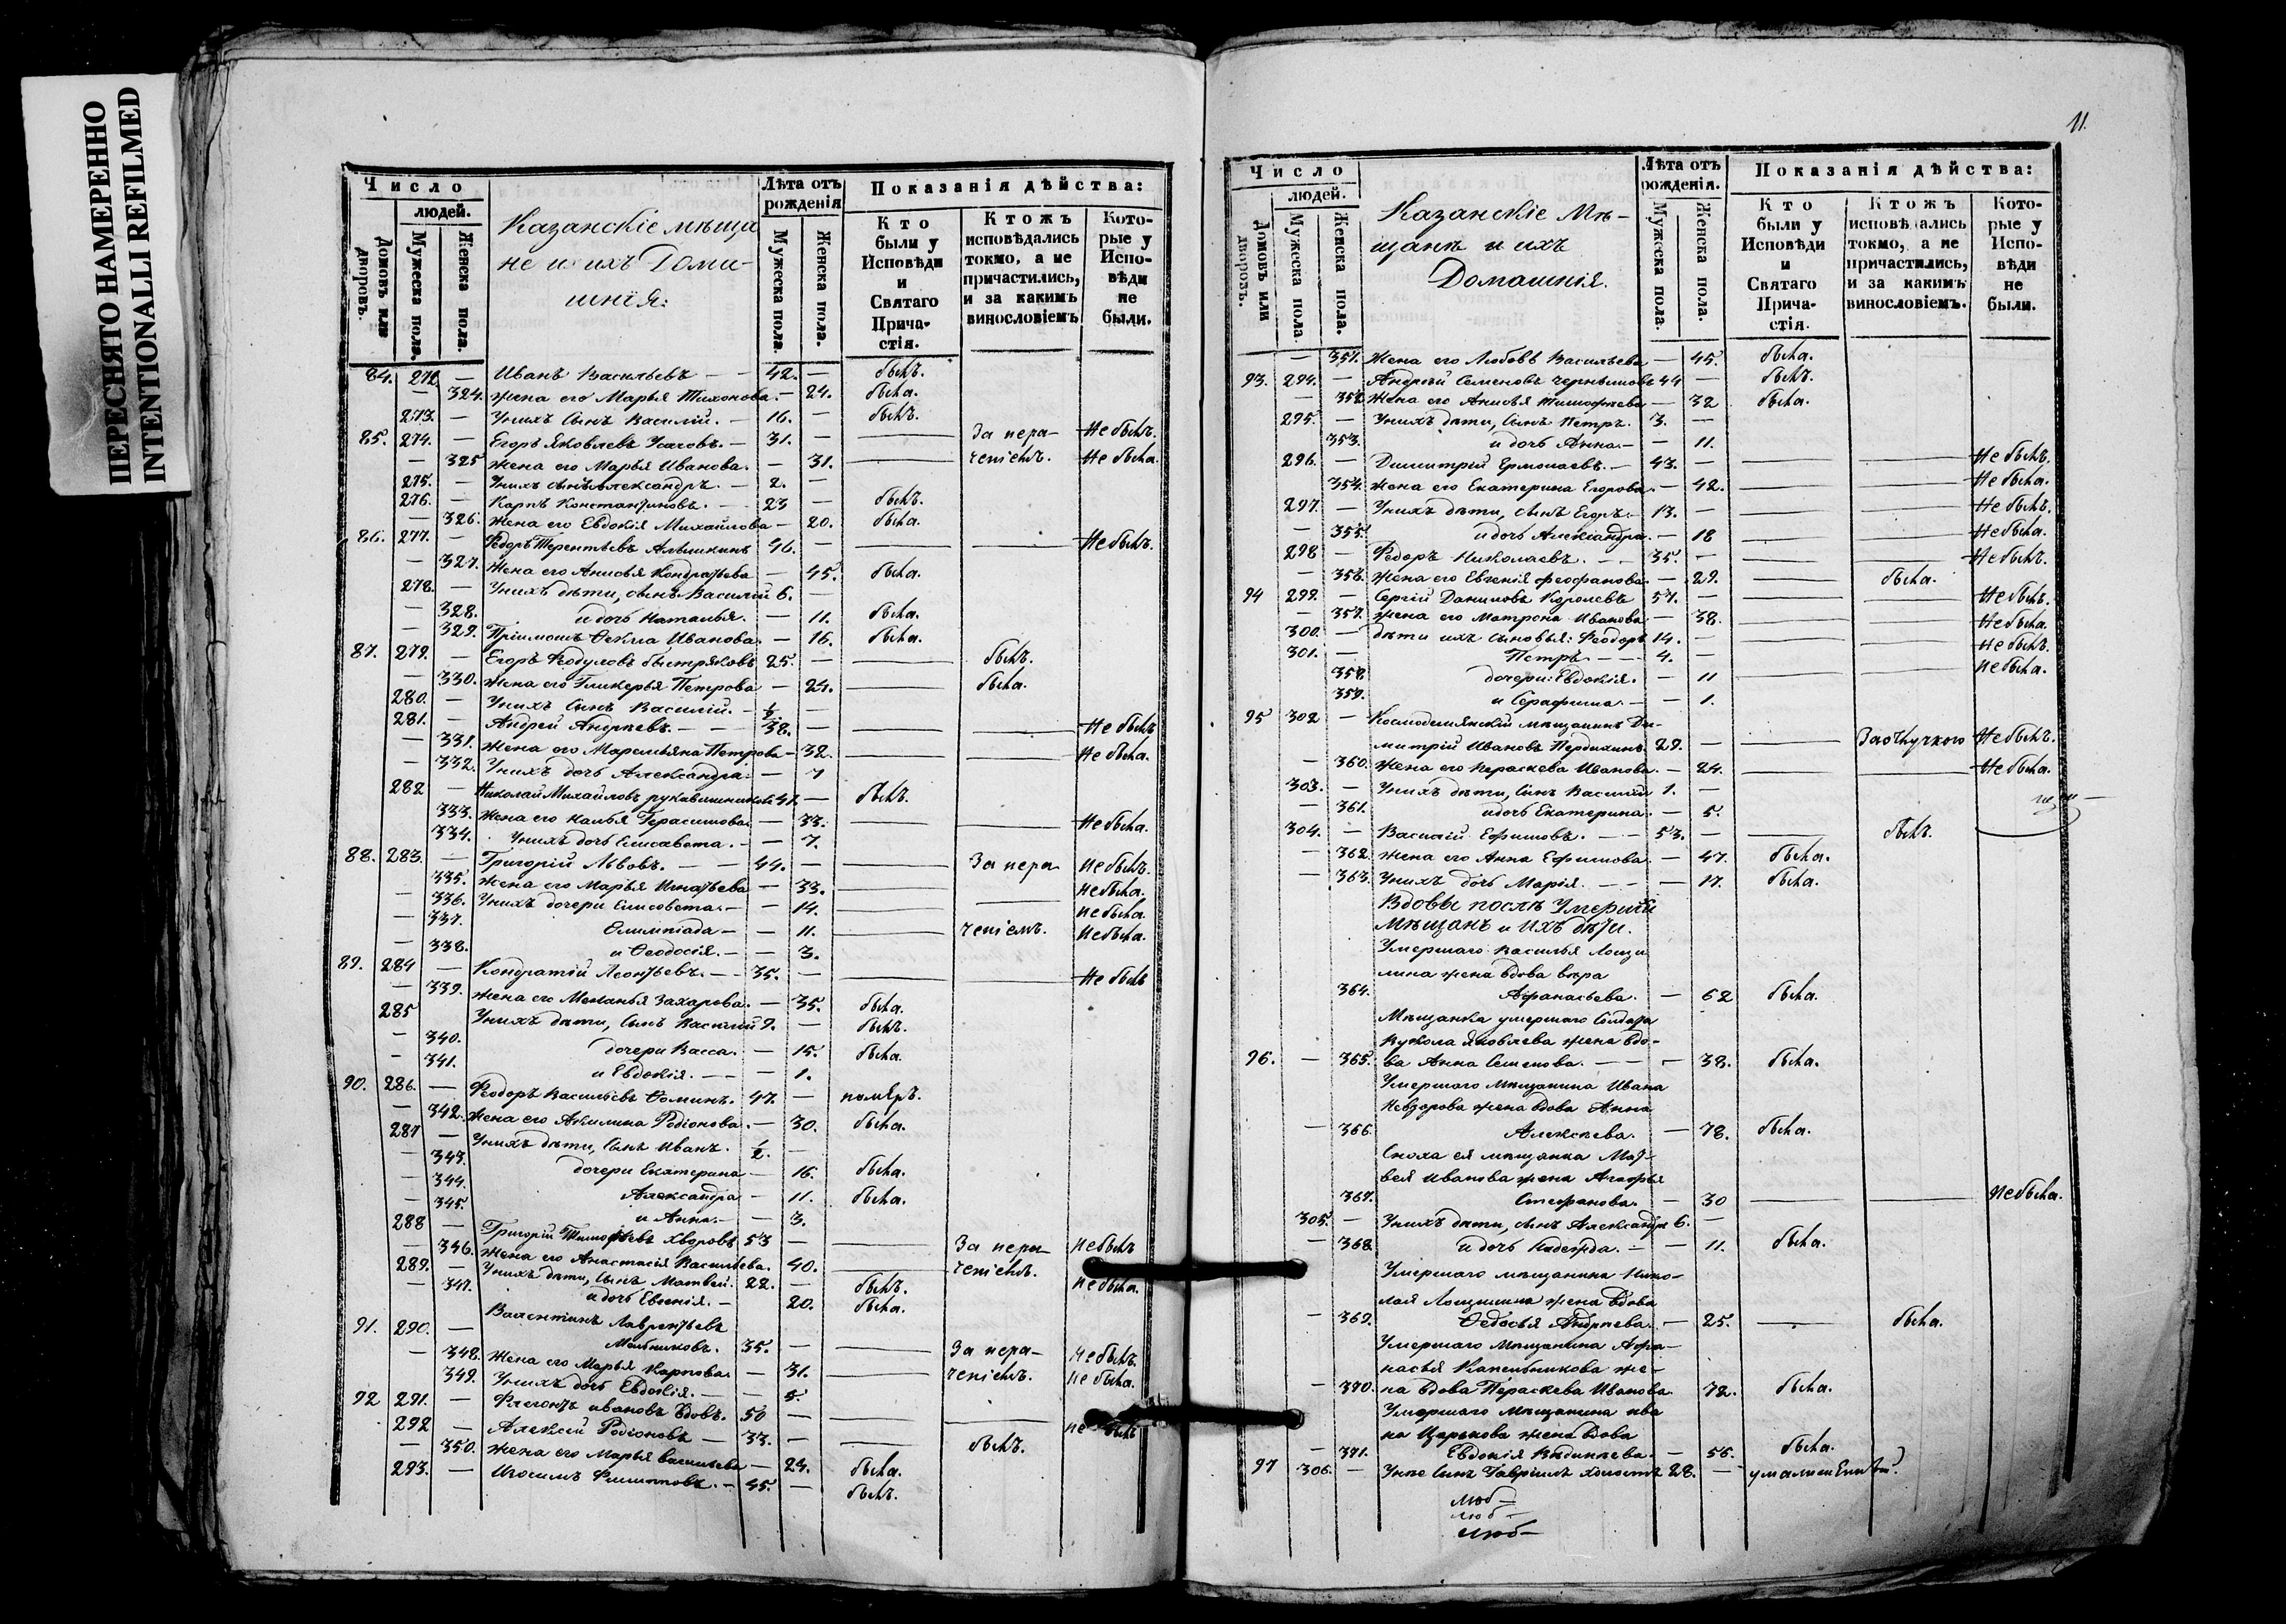 ПЕРЕСНЯТО НАМЕРЕННО
INTENTIONALLI REFILMED
Число
людей.
Домовъ или дворовъ.
Мужеска пола.
Женска пола.
Казанскіе мѣща
не и ихъ Дома-
шнія:
Лѣта отъ рожденія
Мужеска пола.
Женска пола.
Показанія дѣйства:
Кто были у Исповѣди и Святаго Прича-стія.
Ктожъ исповѣдались токмо, а не причастились, и за какимъ винословіемъ
Кото-рые у Испо-вѣди не были.
84. 272. — Иванъ Васильевъ — — 42. — былъ.
— 324. жена его Марья Тихонова. — 24. была.
273. — Унихъ Сынъ Василій. — 16. — былъ.
85. 274. — Егоръ Яковлевъ Усачовъ. — 31. — — За нера- Не былъ.
— 325 жена его Марья Иванова. — 31. — ченіемъ. Не была.
275. — Унихъ сынъ Александръ. — 2. —
276. — Карпъ Константиновъ. — 23 былъ.
— 326. жена его Евдокія Михайлова — 20. была.
86. 277. — Федоръ Терентьевъ Алышкинъ 46. — — — Не былъ.
— 327. Жена его Анисья Кондратьева — 45. была.
278. — Унихъ дѣти, сынъ Василій 6. —
— 328. и дочь Наталья. — 11. была.
— 329. Пріимошъ Ѳекла Иванова. — 16. была.
87. 279. — Егоръ Федуловъ Быстряковъ 25. — — былъ.
— 330. жена его Гликерья Петрова — 24. — была.
280. — Унихъ Сынъ Василій. — ½ —
281. — Андрей Андреевъ. — — 38. — — — Не былъ
— 331. Жена его Маремьяна Петрова — 32. — — Не была.
— 332. Унихъ дочь Александра. — 7
282 — Николай Михайловъ рукавишниковъ 47. — былъ.
333. Жена его Герасимова. — 33. — — Не была.
334. Унихъ дочь Елисавета. — — 7.
88. 283. — Григорій Львовъ. — — 44. — — За нера Не былъ.
335. Жена его Марья Игнатьева — 33. — Не была.
— 336. Унихъ дочери Елисовета. — — 14. — не была.
— 337. Олимпіада — — 11. — ченіемъ. Не была.
— 338. и Ѳеодосія. — — 3.
89. 284 — Кондратій Леонтьевъ. — — 35. — — — Не былъ
— 339. Жена его Меланья Захарова. — 35. была.
285 Унихъ дѣти, Сынъ Василій 9. — былъ.
— 340. дочери Васса. — 15. была.
— 341. и Евдокія. — — — 1.
90. 286. — Феодоръ Васильевъ Ѳоминъ. 47. — помѣръ.
— 342. Жена его Акилина Родіонова. — 30. была.
287 — Унихъ дѣти, Сынъ Иванъ. ½. —
— 343. дочери Екатерина — 16. была.
— 344. Александра — 11. была.
— 345. и Анна. — — 3.
288 — Григорій Тимофѣевъ Хворовъ 53 — — За нера- Не былъ
— 346. Жена его Анастасія Васильева. 40. — ченіемъ.
289. — Унихъ дѣти, Сынъ Матвей. 22. — былъ. не была.
— 347. и дочь Евгенія. — 20. была.
91. 290. — Валентинъ Лаврентьевъ
Мельниковъ. 35. — — За нера- Не былъ.
— 348. Жена его Марья Карпова — 31. — ченіемъ. Не была.
349. Унихъ дочь Евдокія. — — 5.
92 291. — Флегонтъ ивановъ Вдовъ. 50 — — — не былъ
292 — Алексей Родіоновъ — 33. — — былъ.
— 350. жена его Марья васильева — 24. была.
293. — Филиповъ. — 45. — былъ.
11.
Число
людей.
Домовъ или дворовъ.
Мужеска пола
Женска пола.
Казанскіе Мѣ-
щане и ихъ
Домашнія.
Лѣта отъ рожденія.
Мужеска пола.
Женска пола.
Показанія дѣйства:
Кто были у Исповѣди и Святаго Прича-стія.
Ктожъ исповѣдались токмо, а не причастились, и за какимъ винословіемъ.
Кото-рые у Испо-вѣди не были.
— 351. Жена его Любовь Васильева — 45. была.
93. 294. — Андрей Семеновъ Чернышовъ 44 — былъ.
— 352. Жена его Анисья Тимофѣева — 32 была.
295. — Унихъ дѣти, Сынъ Петръ. 3. —
353. и дочь Анна. — — 11.
296. — Димитрій Ермолаевъ. — 43. — — — Не былъ.
354. Жена его Екатерина Егорова. — 42. — — Не была.
297. — Унихъ дѣти, сынъ Егоръ. — 13. — — — Не былъ.
— 355. и дочь Александра. — 18 — — Не была.
298 — Федоръ Николаевъ. — — 35. — — Не былъ.
— 356. Жена его Евгенія Феофанова. — 29. — была.
94 299. — Сергій Даниловъ Королевъ 57. — — — Не былъ.
— 357. жена его Матрона Иванова — 38. — — Не была
300. — дѣти ихъ сыновья: Феодоръ 14. — — — Не былъ.
301. — Петръ — — 4. —
358 дочери: Евдокія. — 11 — — Не была.
359. и Серафима. — — 1.
95 302 — Космодемянскій мѣщанинъ Ди-
митрій Ивановъ 29. — — Заотлучкою Не былъ.
— 360. Жена его Параскева Иванова. — 24. — — Не была.
303. — Унихъ дѣти, Сынъ Василій 1. —
— 361. и дочь Екатерина. — 5.
304. — Василій Ефимовъ. — — 53. — — былъ.
— 362. Жена его Анна Ефимова. — 47. была.
— 363. Унихъ дочь Марія. — — — 17. была.
Вдовы послѣ Умершихъ
Мѣщанъ и Ихъ дѣти.
Умершаго Василья Лощи
лина жена вдова вѣра
364. Афанасьева. — 62 была.
Мѣщанка умершаго Солдата
Яковлева жена вдо-
96. — 365. ва Анна Семенова. — — — 38. была.
Умершаго мѣщанина Ивана
Невзорова жена вдова Анна
— 366. Алексѣева. — 78. была.
Сноха ея мѣщанка Мат-
вея Иванова жена Агафья
367. Стефанова. — 30 — — Не была.
305. — Унихъ дѣти, сынъ Александръ 6. —
— 368. и дочь Надежда. — — 11. была.
Умершаго мѣщанина Нико-
лая Лощилина жена вдова
— 369. Ѳедосья Андреева. — 25. — была.
Умершаго Мѣщанина Афа-
насья Капельникова же-
— 370. на вдова Параскева Иванова. 72. была.
Умершаго Мѣщанина Ива
на Царькова жена вдова
— 371. Евдокія — 56. была.
97 306. — Унее Сынъ Гавріилъ холостъ 28. —
Люб—
люб—
Люб—